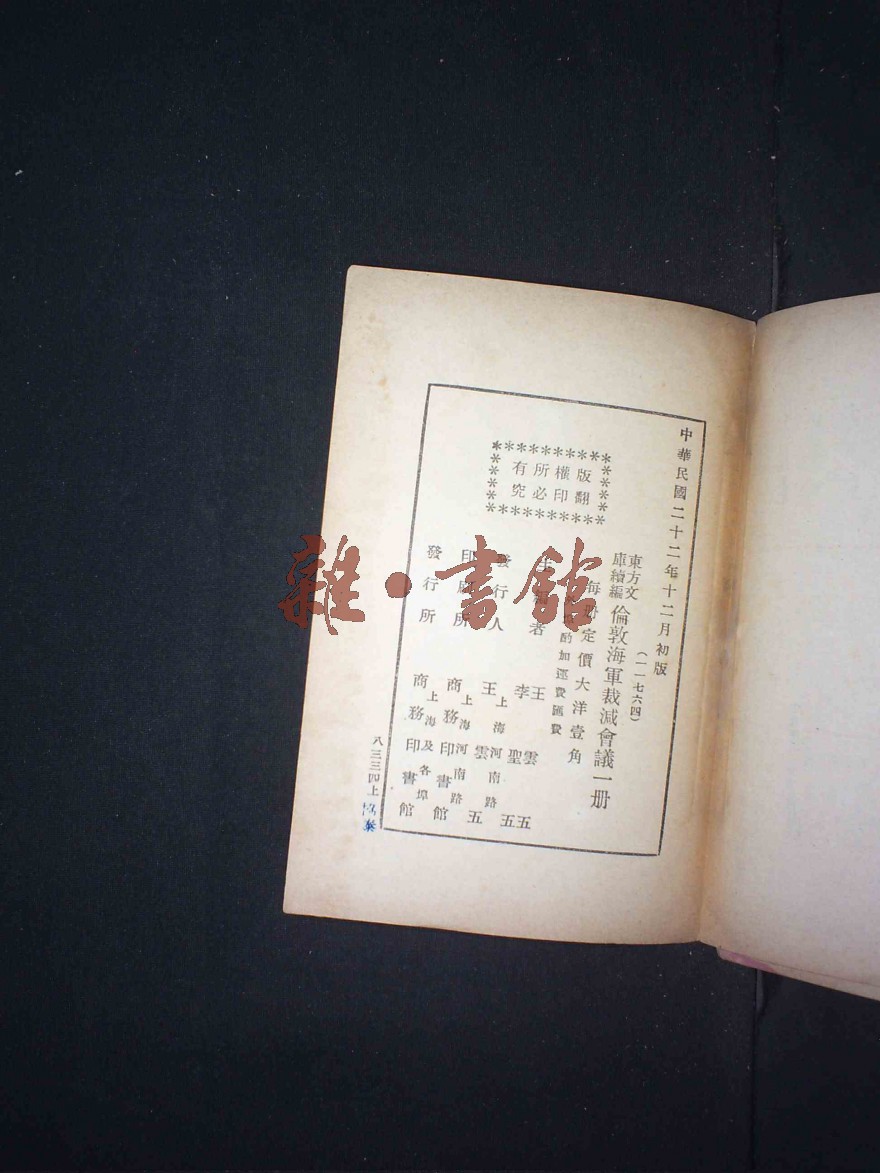 中華民國二十二年十二月初版
(一一七六四)
東方文
庫續編
倫敦海軍裁減會議一册
每册定價大洋壹角
酌加運費匯費
版權所有
翻印必究
者
王雲五
李聖五
發行人
上海河南路
王雲五
印刷所
上海河南路
商務印書館
發行所
上海及各埠
商務印書館
八三三四上
雜·書館